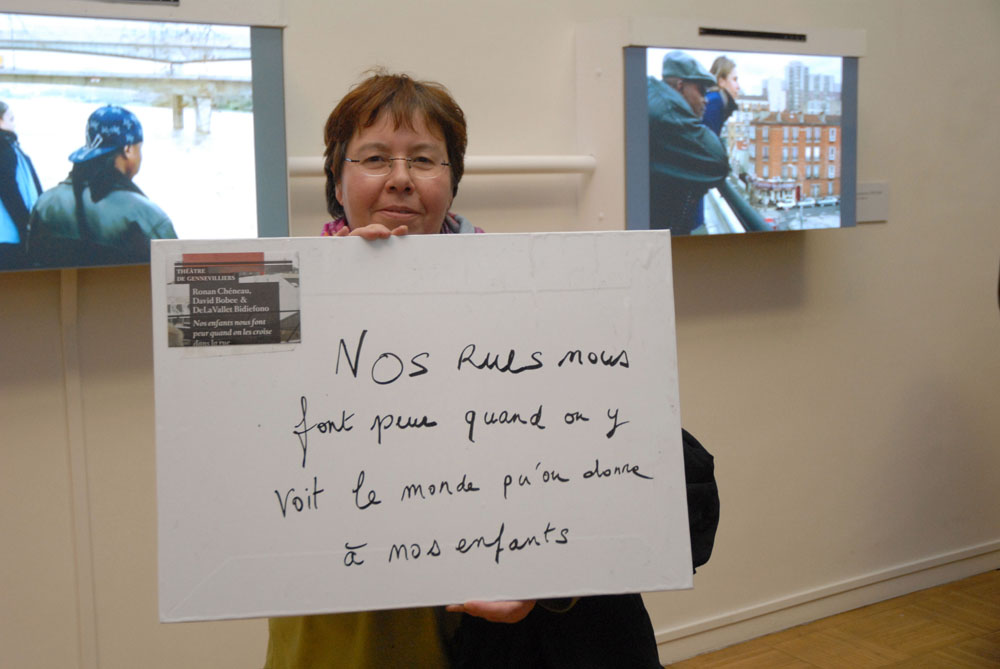 THÉÂTRE
DE GENNEVILLIERS
Ronan Chéneau,
David Bobee &
DeLaVallet Bidiefono
Nos enfants nous font
peur quand on les croise
dans la rue
Nos rues nous
font peur quand on y
voit le monde qu'on donne
à nos enfants